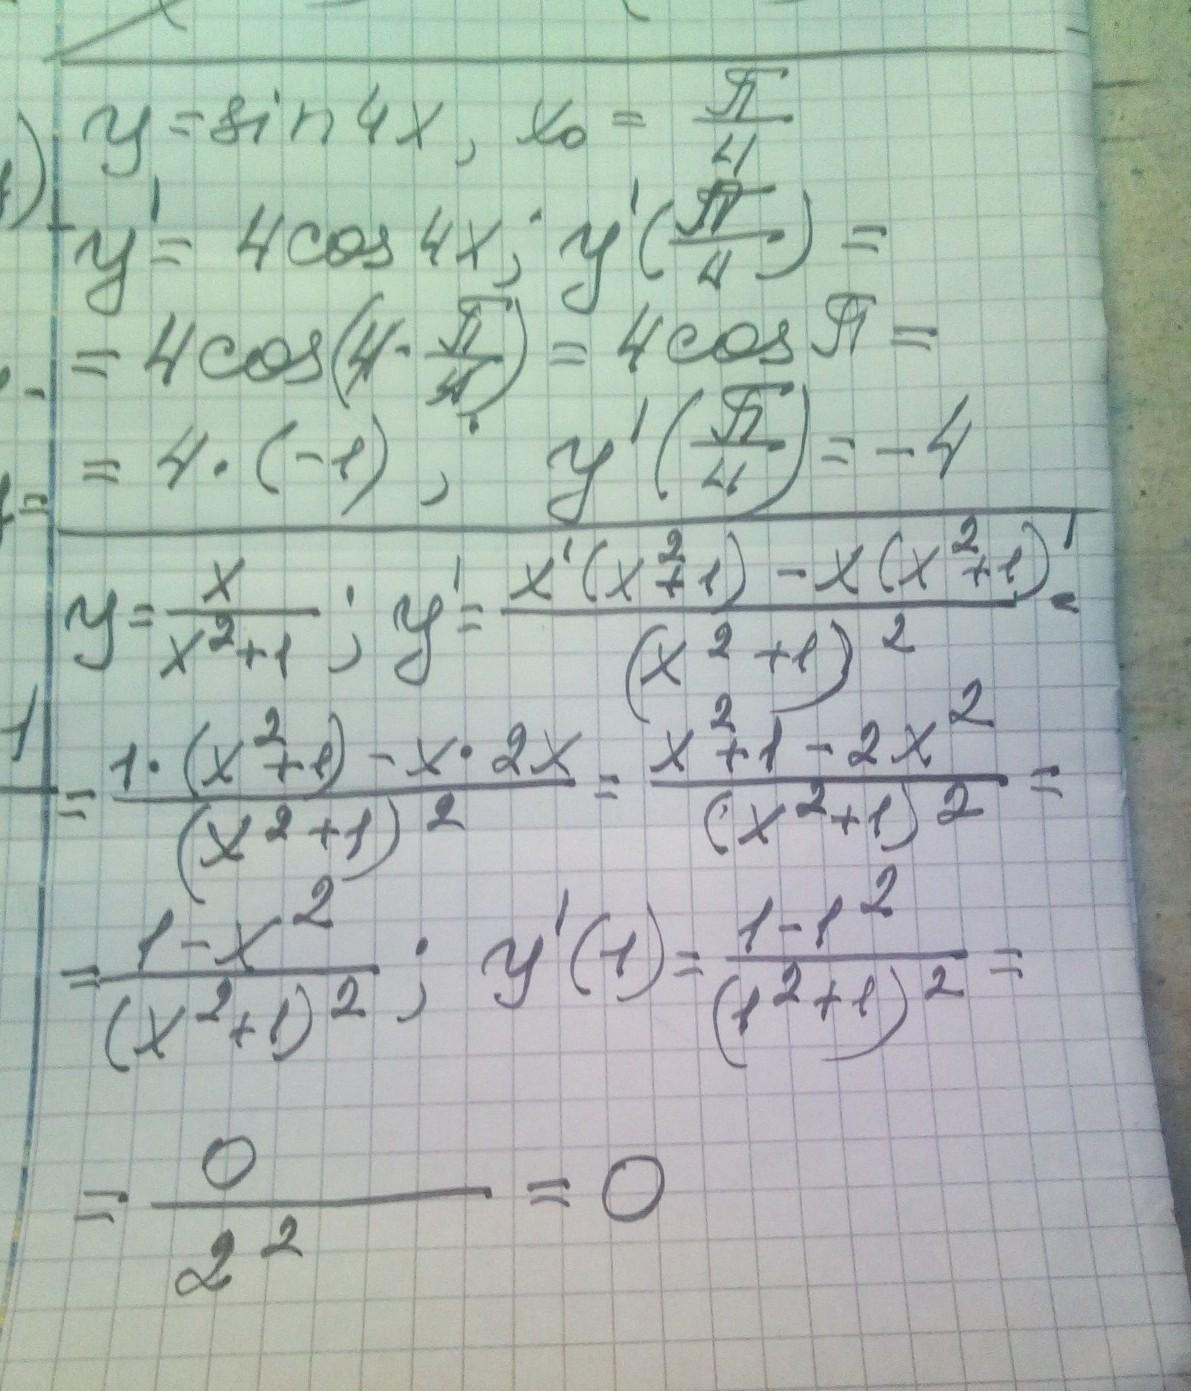 y = sin 4x, x₀ = π/4
y' = 4 cos 4x; y'(π/4) =
= 4 cos(4·π/4) = 4 cos π =
= 4·(-1), y'(π/4) = -4
y = x/(x²+1); y' = (x'(x²+1) - x(x²+1)')/(x²+1)² =
= (1·(x²+1) - x·2x)/(x²+1)² = (x²+1-2x²)/(x²+1)² =
= (1-x²)/(x²+1)²; y'(1) = (1-1²)/(1²+1)² =
= 0/2² = 0